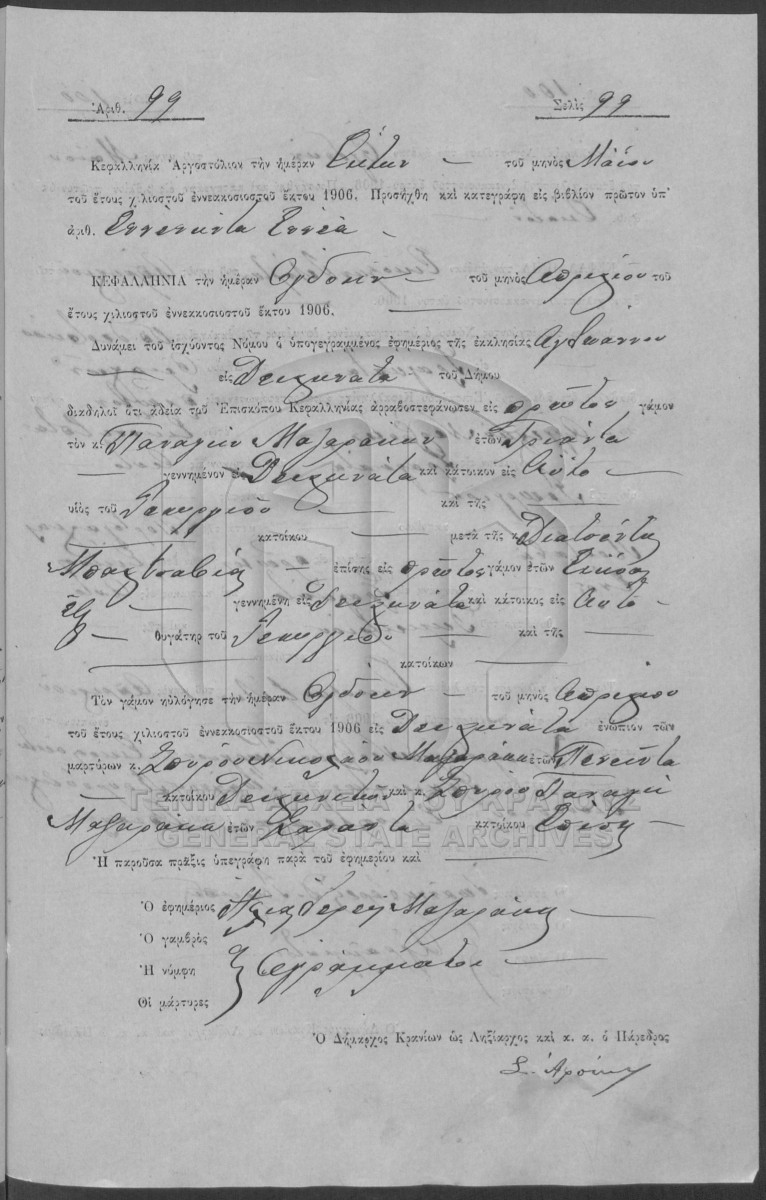 Ἀριθ. 99 Σελὶς 99
Κεφαλληνία Ἀργοστόλιον τὴν ἡμέραν Ἕκτην τοῦ μηνὸς Μαΐου
τοῦ ἔτους χιλιοστοῦ ἐννεακοσιοστοῦ ἕκτου 1906. Προσήχθη καὶ κατεγράφη εἰς βιβλίον πρῶτον ὑπ'
ἀριθ. Ἐννενῆντα Ἐννέα
ΚΕΦΑΛΛΗΝΙΑ τὴν ἡμέραν Ὀγδόην τοῦ μηνὸς Ἀπριλίου τοῦ
ἔτους χιλιοστοῦ ἐννεακοσιοστοῦ ἕκτου 1906.
Δυνάμει τοῦ ἰσχύοντος Νόμου ὁ ὑπογεγραμμένος ἐφημέριος τῆς ἐκκλησίας Ἁγ Ἰωάννου
εἰς Δειλινάτα τοῦ Δήμου
διαδηλοῖ ὅτι ἀδείᾳ τοῦ Ἐπισκόπου Κεφαλληνίας ἀρραβοστεφάνωσεν εἰς πρῶτον γάμον
τὸν κ. Παναγῆν Μαζαράκην ἐτῶν Τριάντα
γεννημένον εἰς Δειλινάτα καὶ κάτοικον εἰς Αὐτὸ
υἱὸς τοῦ Γεωργίου καὶ τῆς
κατοίκου μετὰ τῆς κ. Διατσέντα
ἐπίσης εἰς πρῶτον γάμον ἐτῶν Εἴκοσι
ἓξ γεννημένη εἰς Δειλινάτα καὶ κάτοικος εἰς Αὐτὸ
θυγάτηρ τοῦ Γεωργίου καὶ τῆς
κατοίκων
Τὸν γάμον ηὐλόγησε τὴν ἡμέραν Ὀγδόην τοῦ μηνὸς Ἀπριλίου
τοῦ ἔτους χιλιοστοῦ ἐννεακοσιοστοῦ ἕκτου 1906 εἰς Δειλινάτα ἐνώπιον τῶν
μαρτύρων κ. Σπύρου Νικολάου Μαζαράκη ἐτῶν Πενῆντα
κατοίκου Δειλινάτων καὶ κ. Σπύρου Παναγῆ
Μαζαράκα ἐτῶν Σαράντα κατοίκου Ἐπίσης
ΓΕΝΙΚΑ ΑΡΧΕΙΑ ΤΟΥ ΚΡΑΤΟΥΣ
GENERAL STATE ARCHIVES
Ἡ παροῦσα πρᾶξις ὑπεγράφη παρὰ τοῦ ἐφημερίου καὶ
Ὁ ἐφημέριος Μαζαράκης
Ὁ γαμβρὸς
Ἡ νύμφη Ἀγράμματοι
Οἱ μάρτυρες
Ὁ Δήμαρχος Κρανίων ὡς Ληξίαρχος καὶ κ. α. ὁ Πάρεδρος